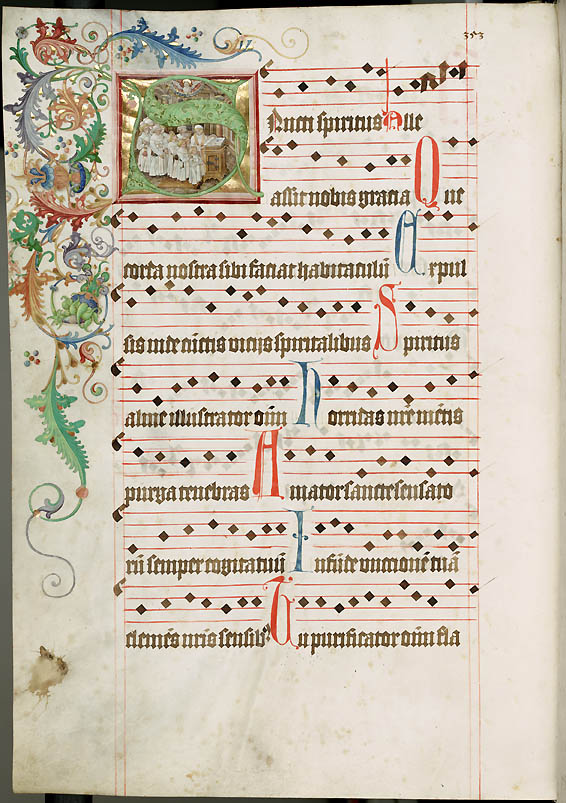 353
Sancti spiritus Alle
assit nobis gracia Que
corda nostra sibi faciat habitaculū Expul
sis inde cūctis vicijs spiritalibus Spiritus
alme illustrator oīm Horridas nr̄e mētis
purga tenebras Amator sancte sensato
rū semper cogitatuū Infūde vnctionē tuā
clemēs nr̄is sensibꝫ Tu purificator oīm fla